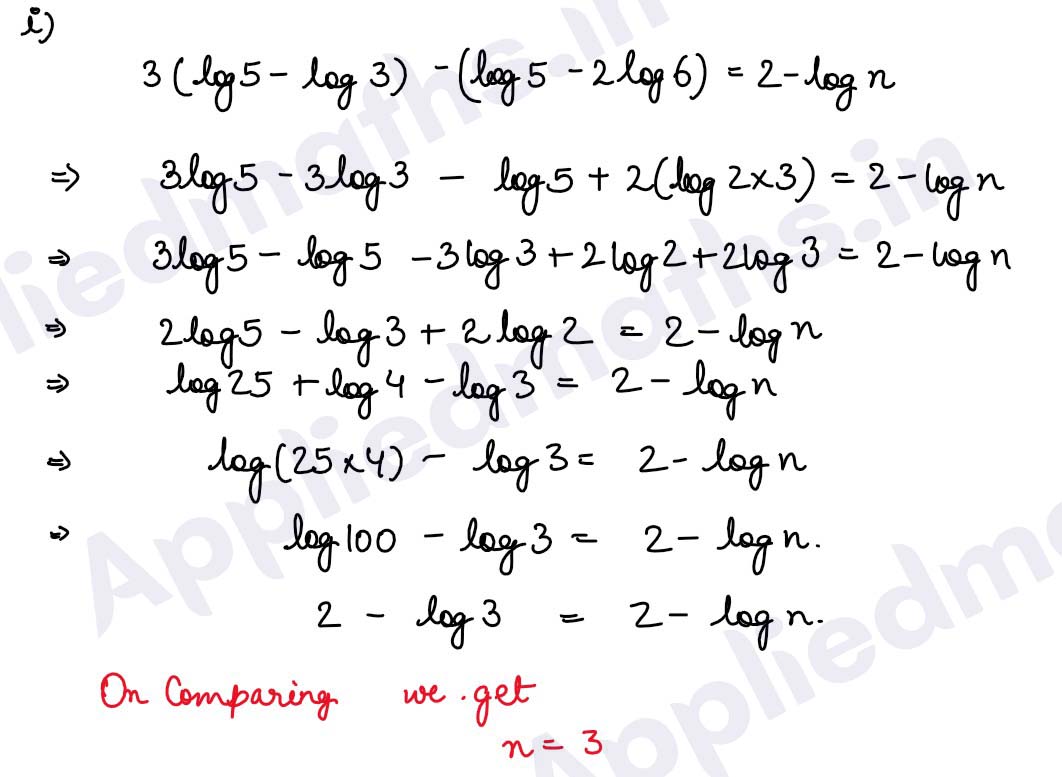 i)
3(log5 - log 3) - (log 5 - 2log6) = 2-log n
⇒ 3log5 - 3log3 - log5 + 2(log 2×3) = 2-log n
⇒ 3log5 - log5 - 3log3 + 2log2 + 2log3 = 2-log n
⇒ 2log5 - log3 + 2log2 = 2-log n
⇒ log25 + log4 - log3 = 2-log n
⇒ log(25×4) - log3 = 2-log n
⇒ log100 - log3 = 2-log n.
2 - log3 = 2-log n.
On Comparing we.get
n = 3
Appliedmaths.in